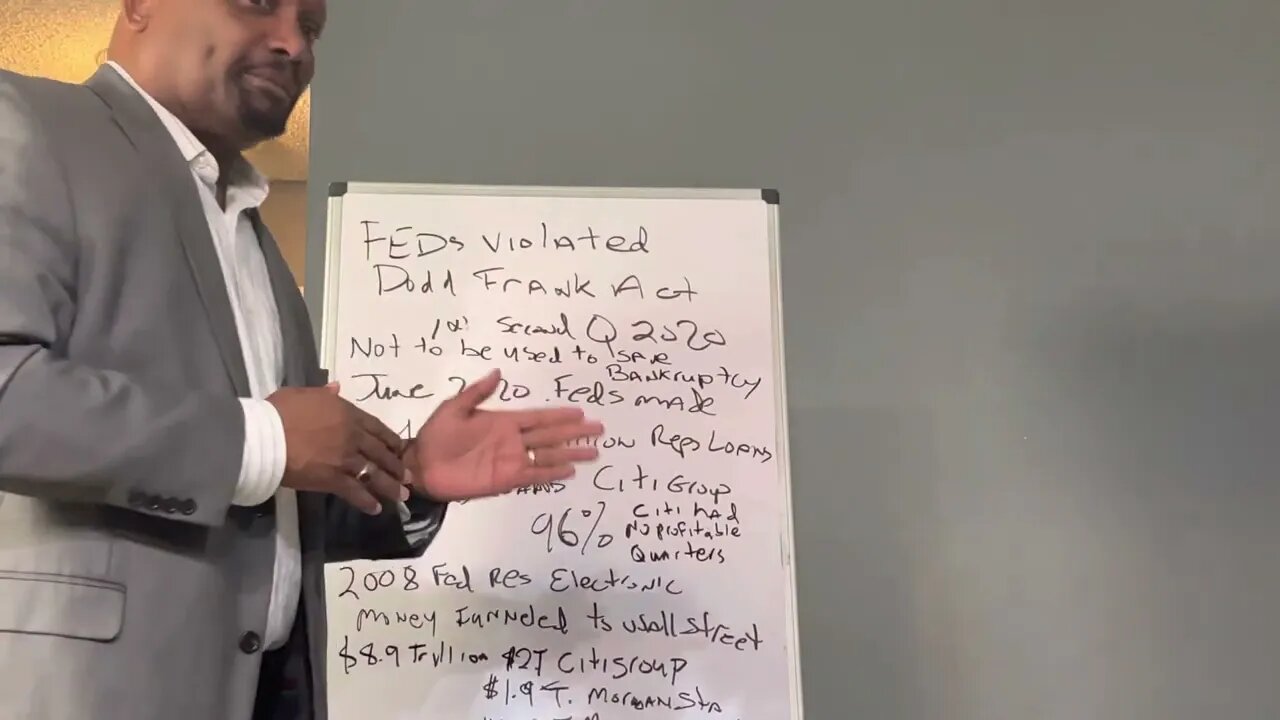 FEDs violated
Dodd Frank Act
Second Q 2020
Not to be used to save
Bankruptcy
June 2020. Feds made
Repo Loans
Citi Group
96%
Citi had
No profitable
Quarters
2008 Fed Res Electronic
money Funneled to wall street
$8.9 Trillion $2T Citigroup
$1.9 T. Morgan Sta